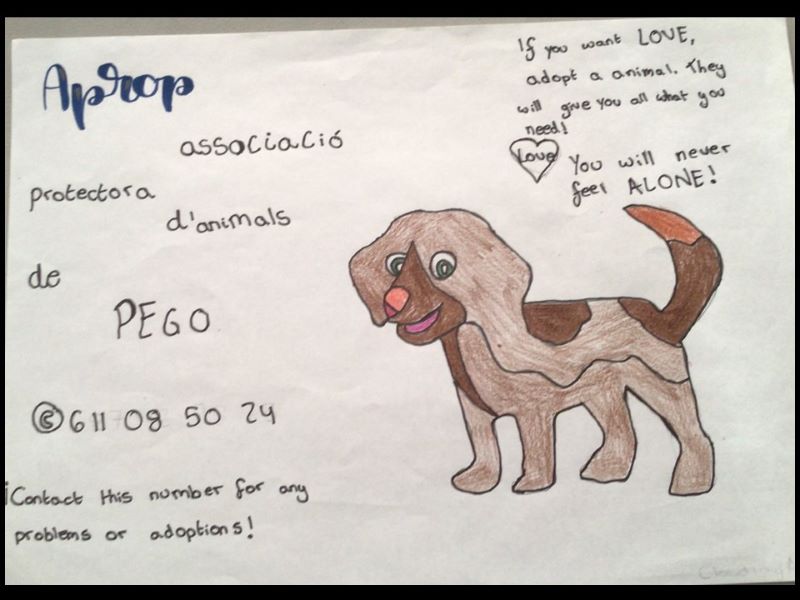 Aprop
associació
protectora
d'animals
de
PEGO
© 611 08 50 24
¡Contact this number for any
problems or adoptions!
If you want LOVE,
adopt a animal. They
will give you all what you
need!
Love
You will never
feel ALONE!